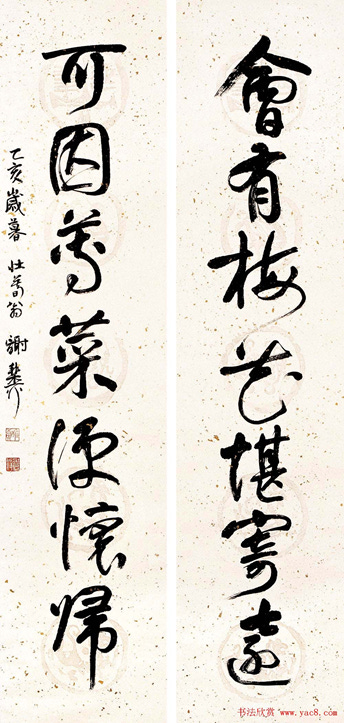 會有梅花堪寄遠
可因蓴菜便懷歸
乙亥歲暮 壯暮翁 謝稚柳
书法欣赏 www.yac8.com